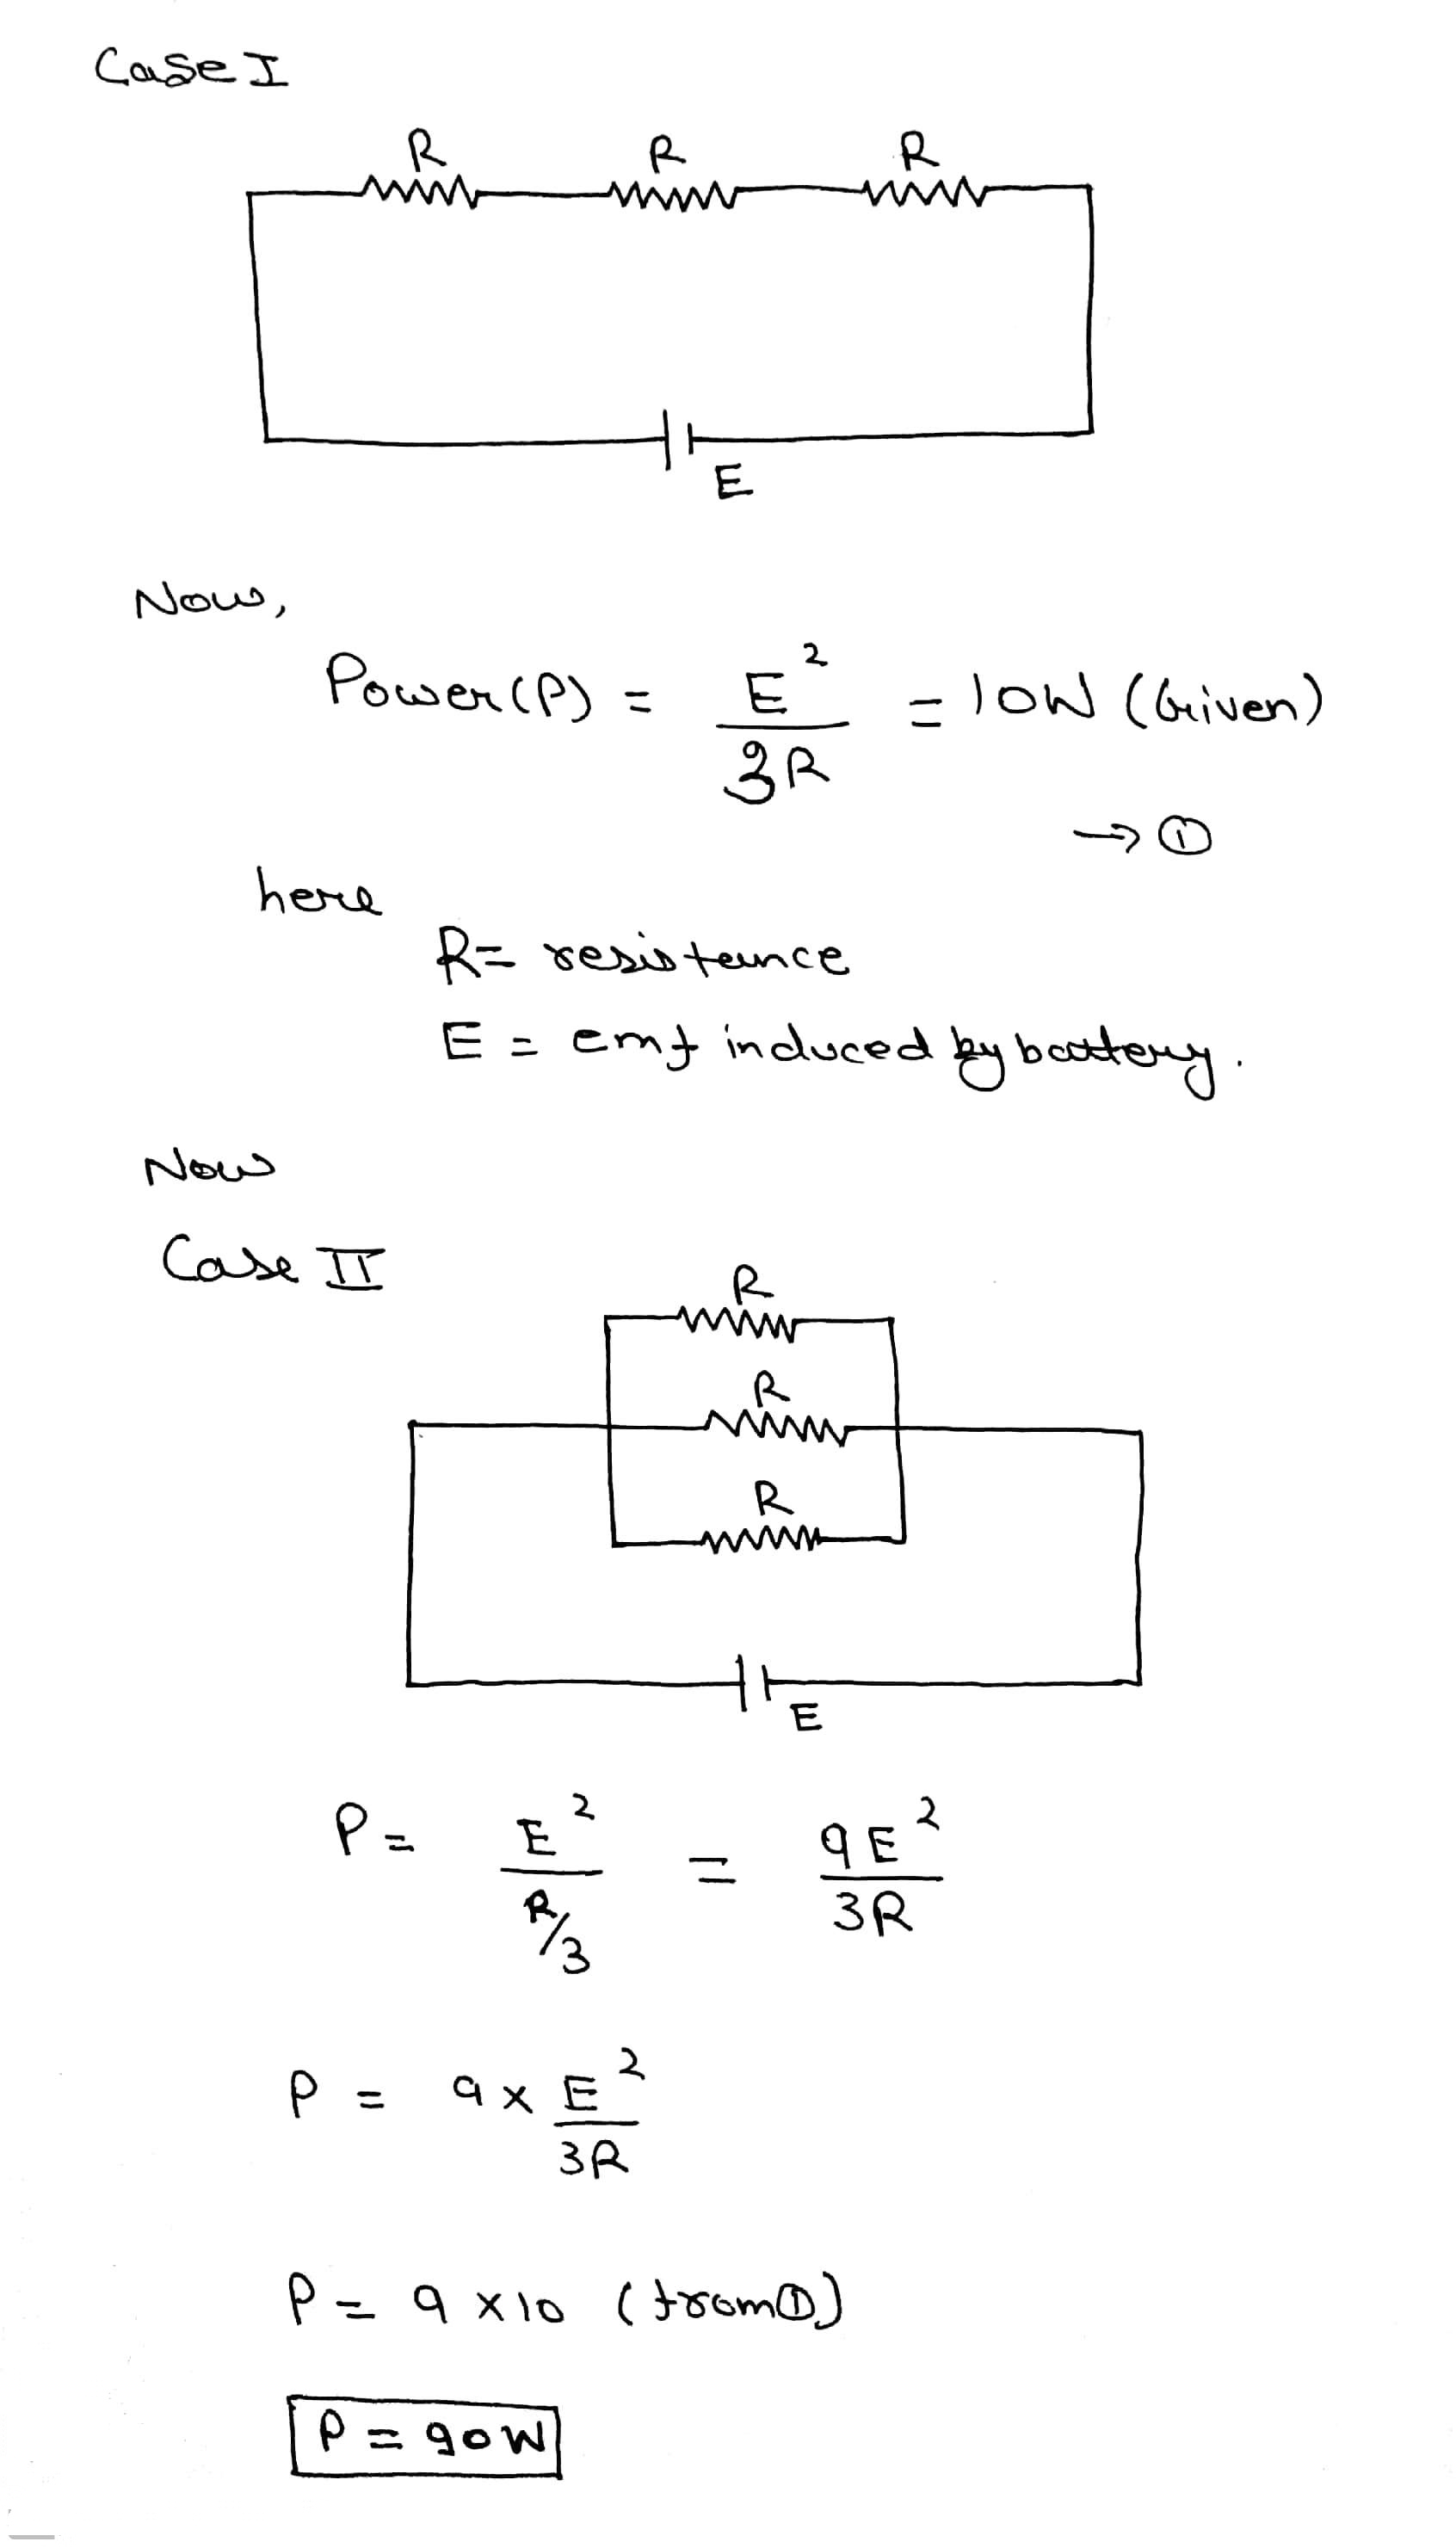 Case I
R R R
E
Now,
Power(P) = E² / 3R = 10W (Given)
→ ①
here
R = resistance
E = emf induced by battery.
Now
Case II
R
R
R
E
P = E² / R/3 = 9E² / 3R
P = 9 × E² / 3R
P = 9 × 10 (from ①)
P = 90W